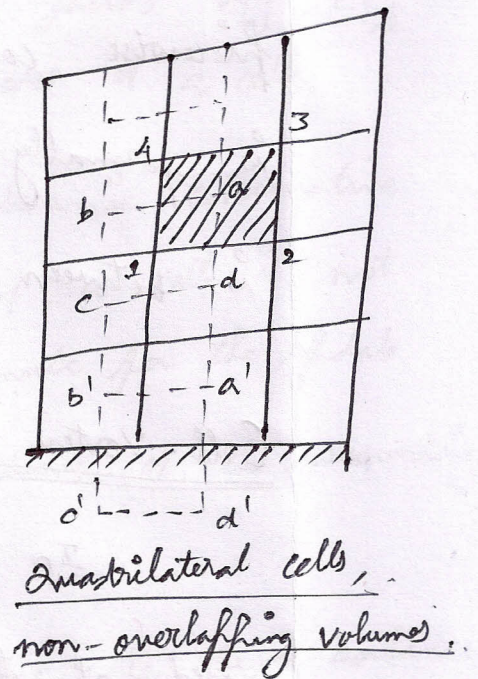 3
4
a
b
1
2
c
d
b'
a'
c'
d'
Quadrilateral cells,
non-overlapping volumes.